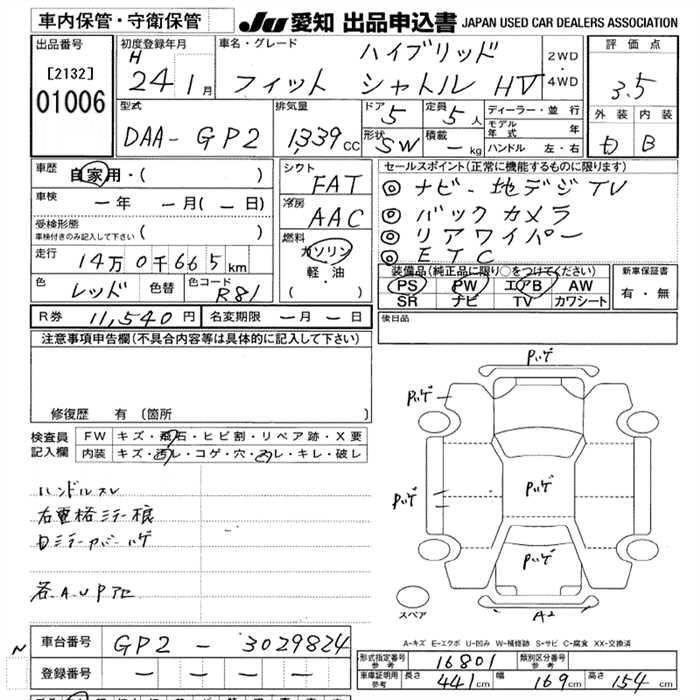 車内保管・守衛保管
JU 愛知 出品申込書 JAPAN USED CAR DEALERS ASSOCIATION
出品番号
[2132]
01006
初度登録年月
H
24 1月
車名・グレード
ハイブリッド
フィット シャトル HV
2WD
・
4WD
評価点
3.5
外装 内装
B
型式
DAA-GP2
排気量
1,339 CC
ドア
5
定員
5人
形状
SW
積載
- kg
ディーラー・並行
モデル年式 年
ハンドル 左・右
車歴
自家用・( )
車検
一年 一月(一日)
受検形態
車検付きのみ記入して下さい ( )
走行
14万0千665km
色
レッド
色替
色コード
R81
シフト
FAT
冷房
AAC
燃料
ガソリン
軽・油
( ・ )
セールスポイント(正常に機能するものに限ります)
◎ ナビ・地デジTV
◎ バックカメラ
◎ リアワイパー
◎ ETC
装備品(純正品に限り○をつけてください)
PS PW エアB AW
SR ナビ TV カワシート
新車保証書
有・無
R券 11,540円 名変期限 一月一日
後日品
注意事項申告欄(不具合内容等は具体的に記入して下さい)
修復歴 有 (箇所 )
検査員記入欄
FW キズ・飛石・ヒビ割・リペア跡・X要
内装 キズ・汚レ・コゲ・穴・スレ・キレ・破レ
ハンドルスレ
各A.U.P
Pハゲ
Pハゲ
Pハゲ
Pハゲ
Pハゲ
A2
スペア
A-キズ E-エクボ U-凹み W-補修跡 S-サビ C-腐食 XX-交換済
N
車台番号 GP2 - 3029824
登録番号 - - - -
形式指定番号 参考 16801 類別区分番号 参考
車庫証明用 参考 長さ 441cm 幅 169cm 高さ 154cm